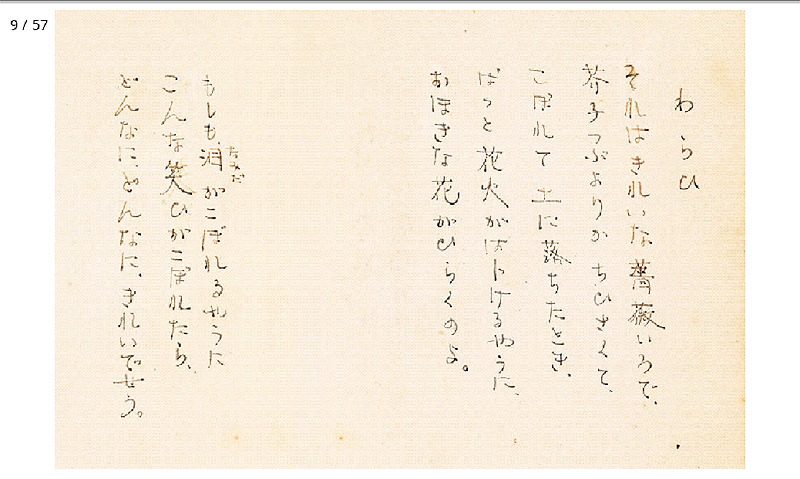 9 / 57
わらひ
それはきれいな薔薇いろで、
芥子つぶよりかちひさくて、
こぼれて土に落ちたとき、
ぱつと花火がはじけるやうに、
おほきな花がひらくのよ。
もしも泪がこぼれるやうに
なみだ
こんな笑ひがこぼれたら、
どんなに、どんなに、きれいでせう。